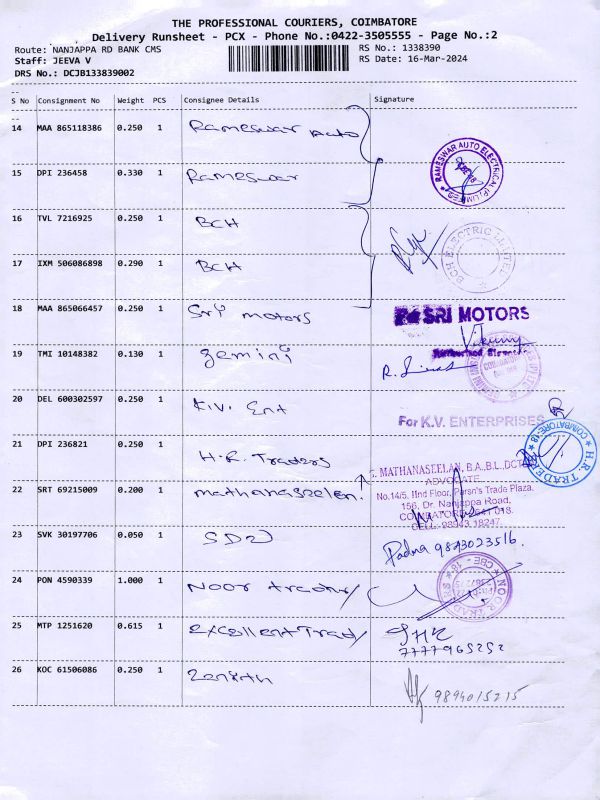 THE PROFESSIONAL COURIERS, COIMBATORE
Delivery Runsheet - PCX - Phone No.:0422-3505555 - Page No.:2
Route: NANJAPPA RD BANK CMS RS No.: 1338390
Staff: JEEVA V RS Date: 16-Mar-2024
DRS No.: DCJB133839002
S No Consignment No Weight PCS Consignee Details Signature
14 MAA 865118386 0.250 1 Rameswar Auto
15 DPI 236458 0.330 1 Rameswar
RAMESWAR AUTO ELECTRICAL (P) LIMITED
16 TVL 7216925 0.250 1 BCH
BCH ELECTRIC LIMITED
17 IXM 506086898 0.290 1 BCH
18 MAA 865066457 0.250 1 Sri motors
SRI MOTORS
19 TMI 10148382 0.130 1 Gemini
20 DEL 600302597 0.250 1 K.V. Ent
For K.V. ENTERPRISES
21 DPI 236821 0.250 1 H.R. Traders
H.R. TRADERS COIMBATORE-18
22 SRT 69215009 0.200 1 mathanaseelan.
MATHANASEELAN, B.A.,B.L.,
ADVOCATE
No.14/5, IInd Floor, Parsn's Trade Plaza,
156, Dr. Nanjappa Road,
COIMBATORE - 641 018.
CELL: 98943 18247
23 SVK 30197706 0.050 1 Padma 9843023516.
24 PON 4590339 1.000 1 Noor
NOOR TRADERS CBE - 18
25 MTP 1251620 0.615 1 Excellent Trad
7777965252
26 KOC 61506086 0.250 1 Zenith
9894015215